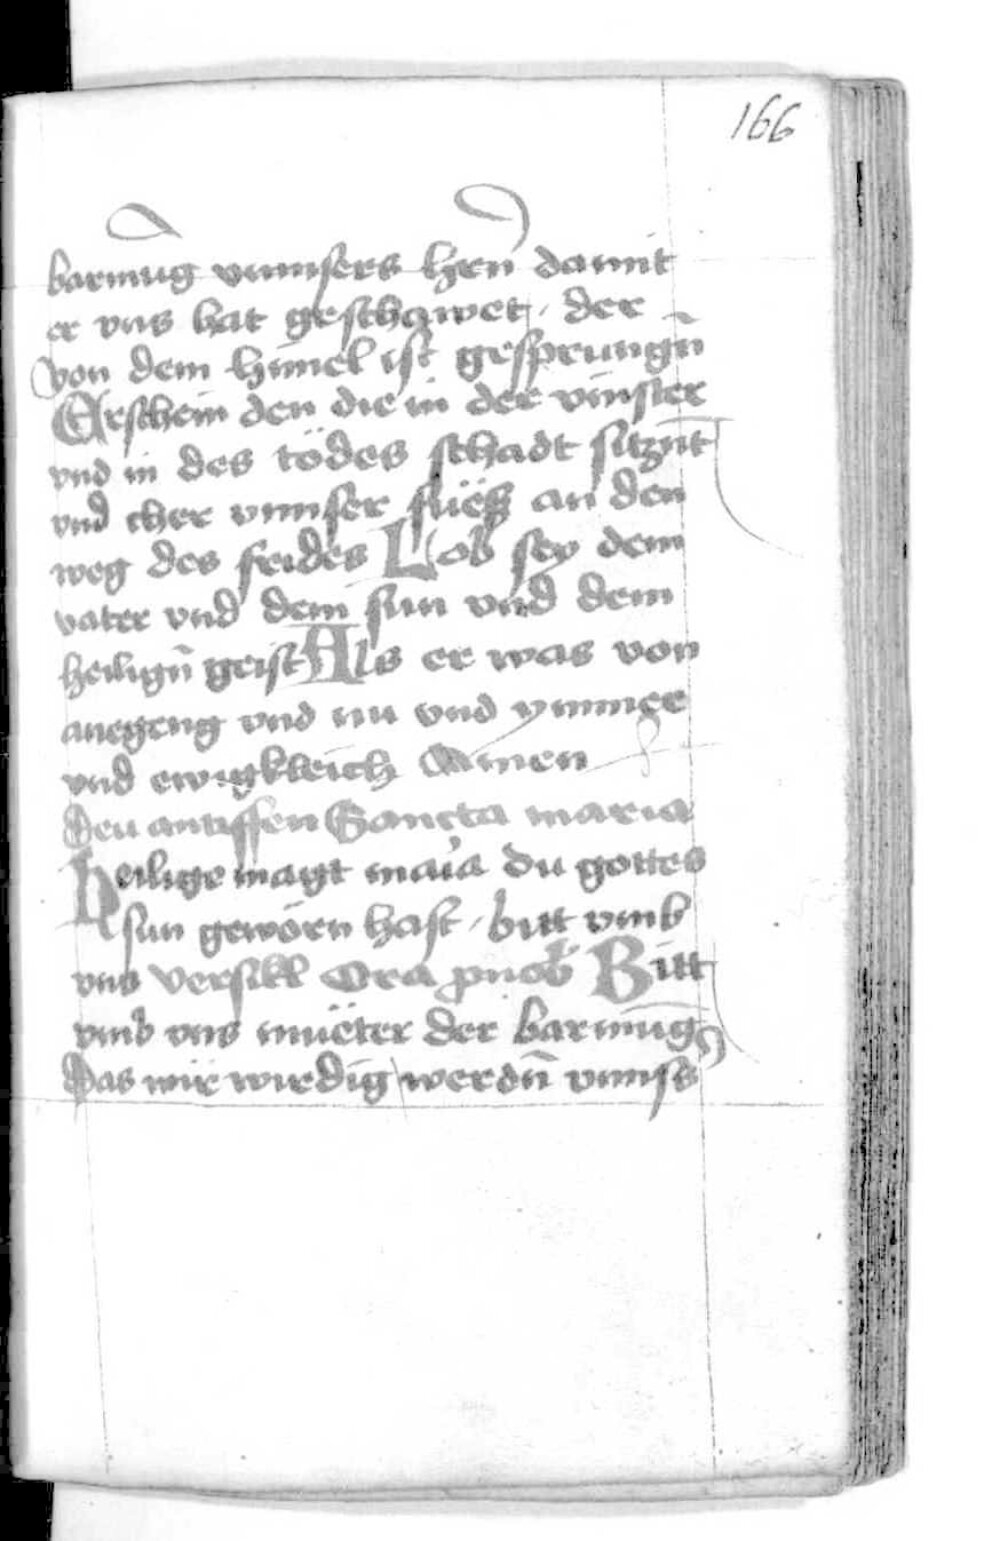 166
barmūg vnnsers hrn̄ damit
er vns hat geschawet, der
von dem himel ist gesprungn̄
Erschein den die in der vinster
vnd in des tödes schadt sitzn̄t
vnd cher vnnser füëß an den
weg des frides Lob sey dem
vater vnd dem sun vnd dem
heilign̄ geist Als er was von
anegeng vnd nu vnd ymmer
vnd ewigkleich Amen
Deu antiffen Sancta maria
Heilige magt maria du gottes
sun geworn hast, bitt vmb
vns versikl Ora p nob Bitt
vmb vns muëter der barmūg
Das wir wirdig werdn̄ vnnss